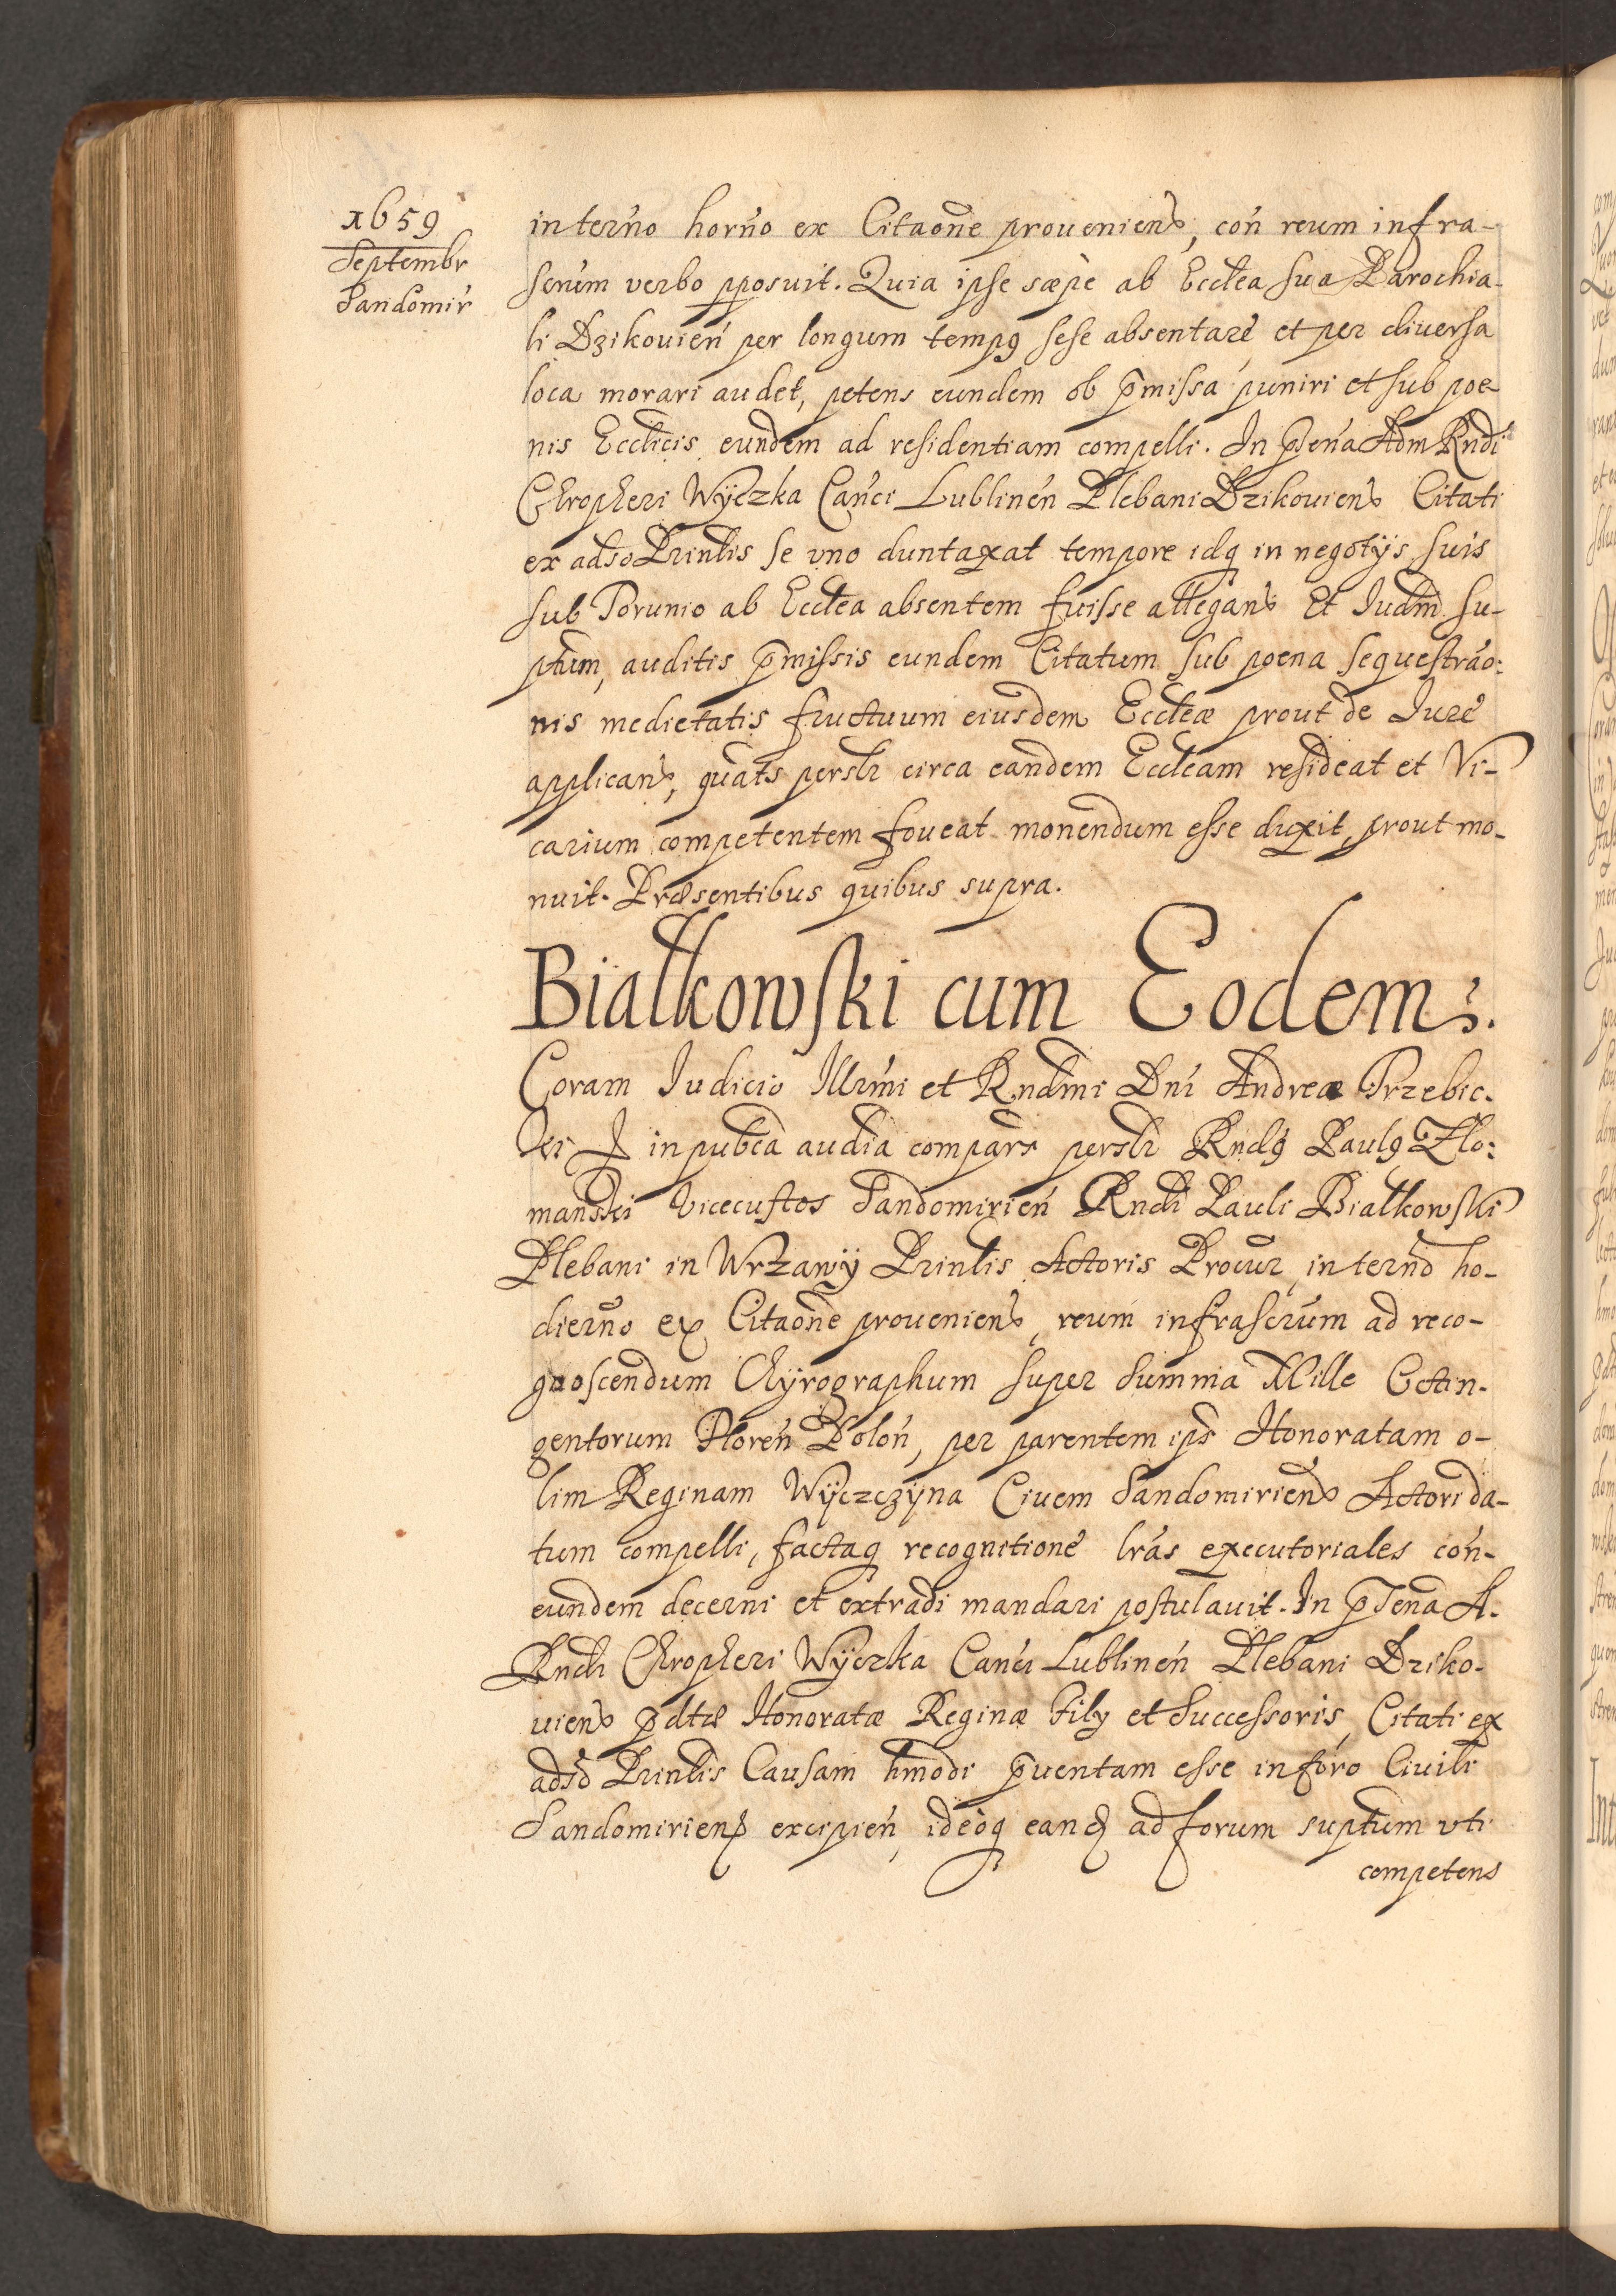 1659
Septembr
Sandomir
in terno horno ex Citaone proueniens, con reum infra-
scrum verbo pposuit. Quia ipse sæpe ab Ecclea sua Parochia-
li Dzikouien per longum tempq sese absentare et per diuersa
loca morari audet, petens eundem ob pmissa puniri et sub poe-
nis Ecclicis eundem ad residentiam compelli. In psena Adm Rndi
Chropheri Wÿczka Canci Lublinen Plebani Dzikouiens Citati
ex adso Prinlis se vno duntaxat tempore idq in negotÿs suis
sub Torunio ab Ecclea absentem fuisse allegans Et Iudm su-
ptum, auditis pmissis eundem Citatum sub poena sequestrao:
nis medietatis fructuum eiusdem Eccleæ prout de Iure
applican, quats perslr circa eandem Eccleam resideat et Vi-
carium competentem foueat monendum esse duxit, prout mo-
nuit. Præsentibus quibus supra.
Białkowski cum Eodem.
Coram Iudicio Illrmi et Rndmi Dni Andreæ Trzebic.
in pubca audia compars perslr Rndq Paulq Zło:
manski Vicecustos Sandomirien Rndi Pauli Białkowski
Plebani in Wrzawÿ Prinlis Actoris Procur, in terno ho-
dierno ex Citaone proueniens, reum infrascrum ad reco-
gnoscendum Chÿrographum super summa Mille Octin-
gentorum Floren Polon, per parentem ips Honoratam o-
lim Reginam Wÿczczÿna Ciuem Sandomiriens Actori da-
tum compelli, factaq recognitione lras executoriales con-
eundem decerni et extradi mandari postulauit. In psena A.
Rndi Chropheri Wÿczka Canci Lublinen Plebani Dziko-
uiens pdtæ Honoratæ Reginæ Filÿ et Successoris, Citati ex
adso Prinlis Causam hmodi puentam esse in foro Ciuili
Sandomiriens excipien, ideoq eand ad forum suptum vti
competens